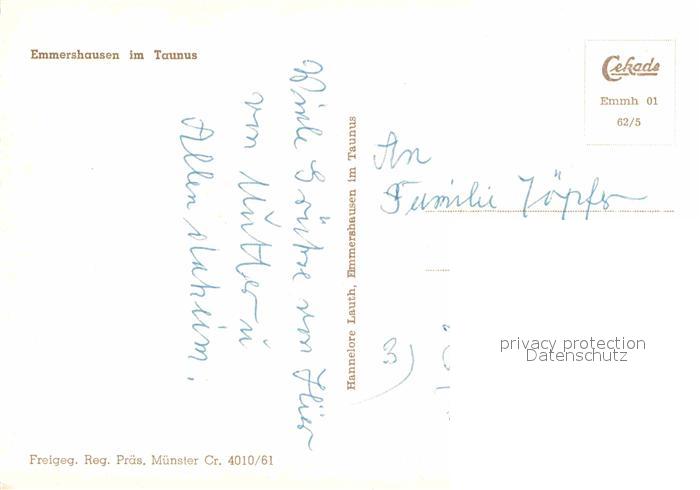 Emmershausen im Taunus
Viele Grüße von Hier
von Mutter u
Allen daheim.
Hannelore Lauth, Emmershausen im Taunus
Cekade
Emmh 01
62/5
An
Familie Töpfer
3)
privacy protection
Datenschutz
Freigeg. Reg. Präs. Münster Cr. 4010/61